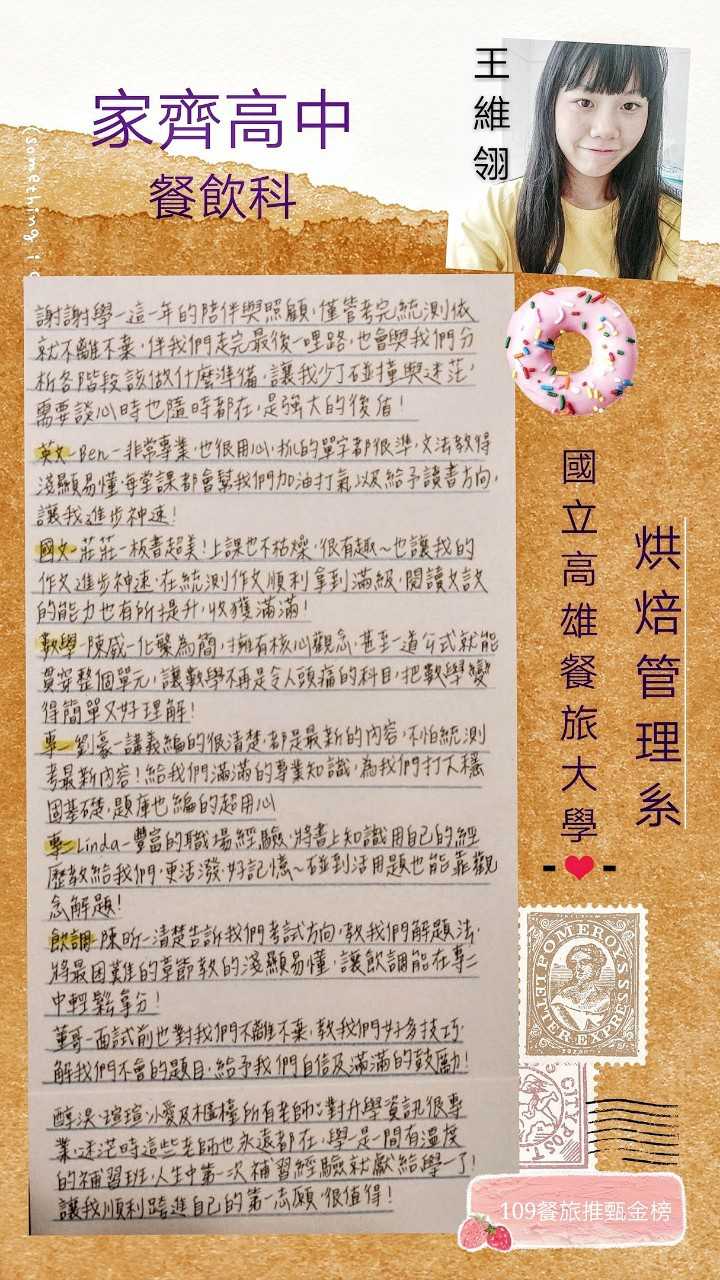 家齊高中
餐飲科
王維翎
(something i
謝謝學一這一年的陪伴與照顧,僅管考完統測依
就不離不棄,伴我們走完最後一哩路,也會與我們分
析各階段該做什麼準備,讓我少了碰撞與迷茫,
需要談心時也隨時都在,是強大的後盾!
英文-Ben-非常專業,也很用心,抓的單字都很準,文法教得
淺顯易懂,每堂課都會幫我們加油打氣以及給予讀書方向,
讓我進步神速!
國文-莊莊-板書超美!上課也不枯燥,很有趣~也讓我的
作文進步神速,在統測作文順利拿到滿級,閱讀文談
的能力也有所提升,收獲滿滿!
數學-陳威-化繁為簡,擁有核心觀念,甚至一道公式就能
貫穿整個單元,讓數學不再是令人頭痛的科目,把數學變
得簡單又好理解!
專一-劉豪-講義編的很清楚都是最新的內容,不怕統測
考最新內容!給我們滿滿的專業知識,為我們打下穩
固基礎,題庫也編的超用心
專二-Linda-豐富的職場經驗,將書上知識用自己的經
歷教給我們,更活潑.好記憶~碰到活用題也能靠觀
念解題!
飲調-陳昕-清楚告訴我們考試方向,教我們解題法,
將最困難的章節教的淺顯易懂,讓飲調能在專二
中輕鬆拿分!
董哥-面試前也對我們不離不棄,教我們好多技巧,
解我們不會的題目,給予我們自信及滿滿的鼓勵!
醇淏、瑄瑄、小愛及櫃檯所有老師對升學資訊很專
業,迷茫時這些老師也永遠都在,學一是一間有溫度
的補習班,人生中第一次補習經驗就獻給學一了!
讓我順利跨進自己的第一志願,很值得!
國立高雄餐旅大學
烘焙管理系
POMEROY'S
LETTER EXPRESS
CITY POST
109餐旅推甄金榜